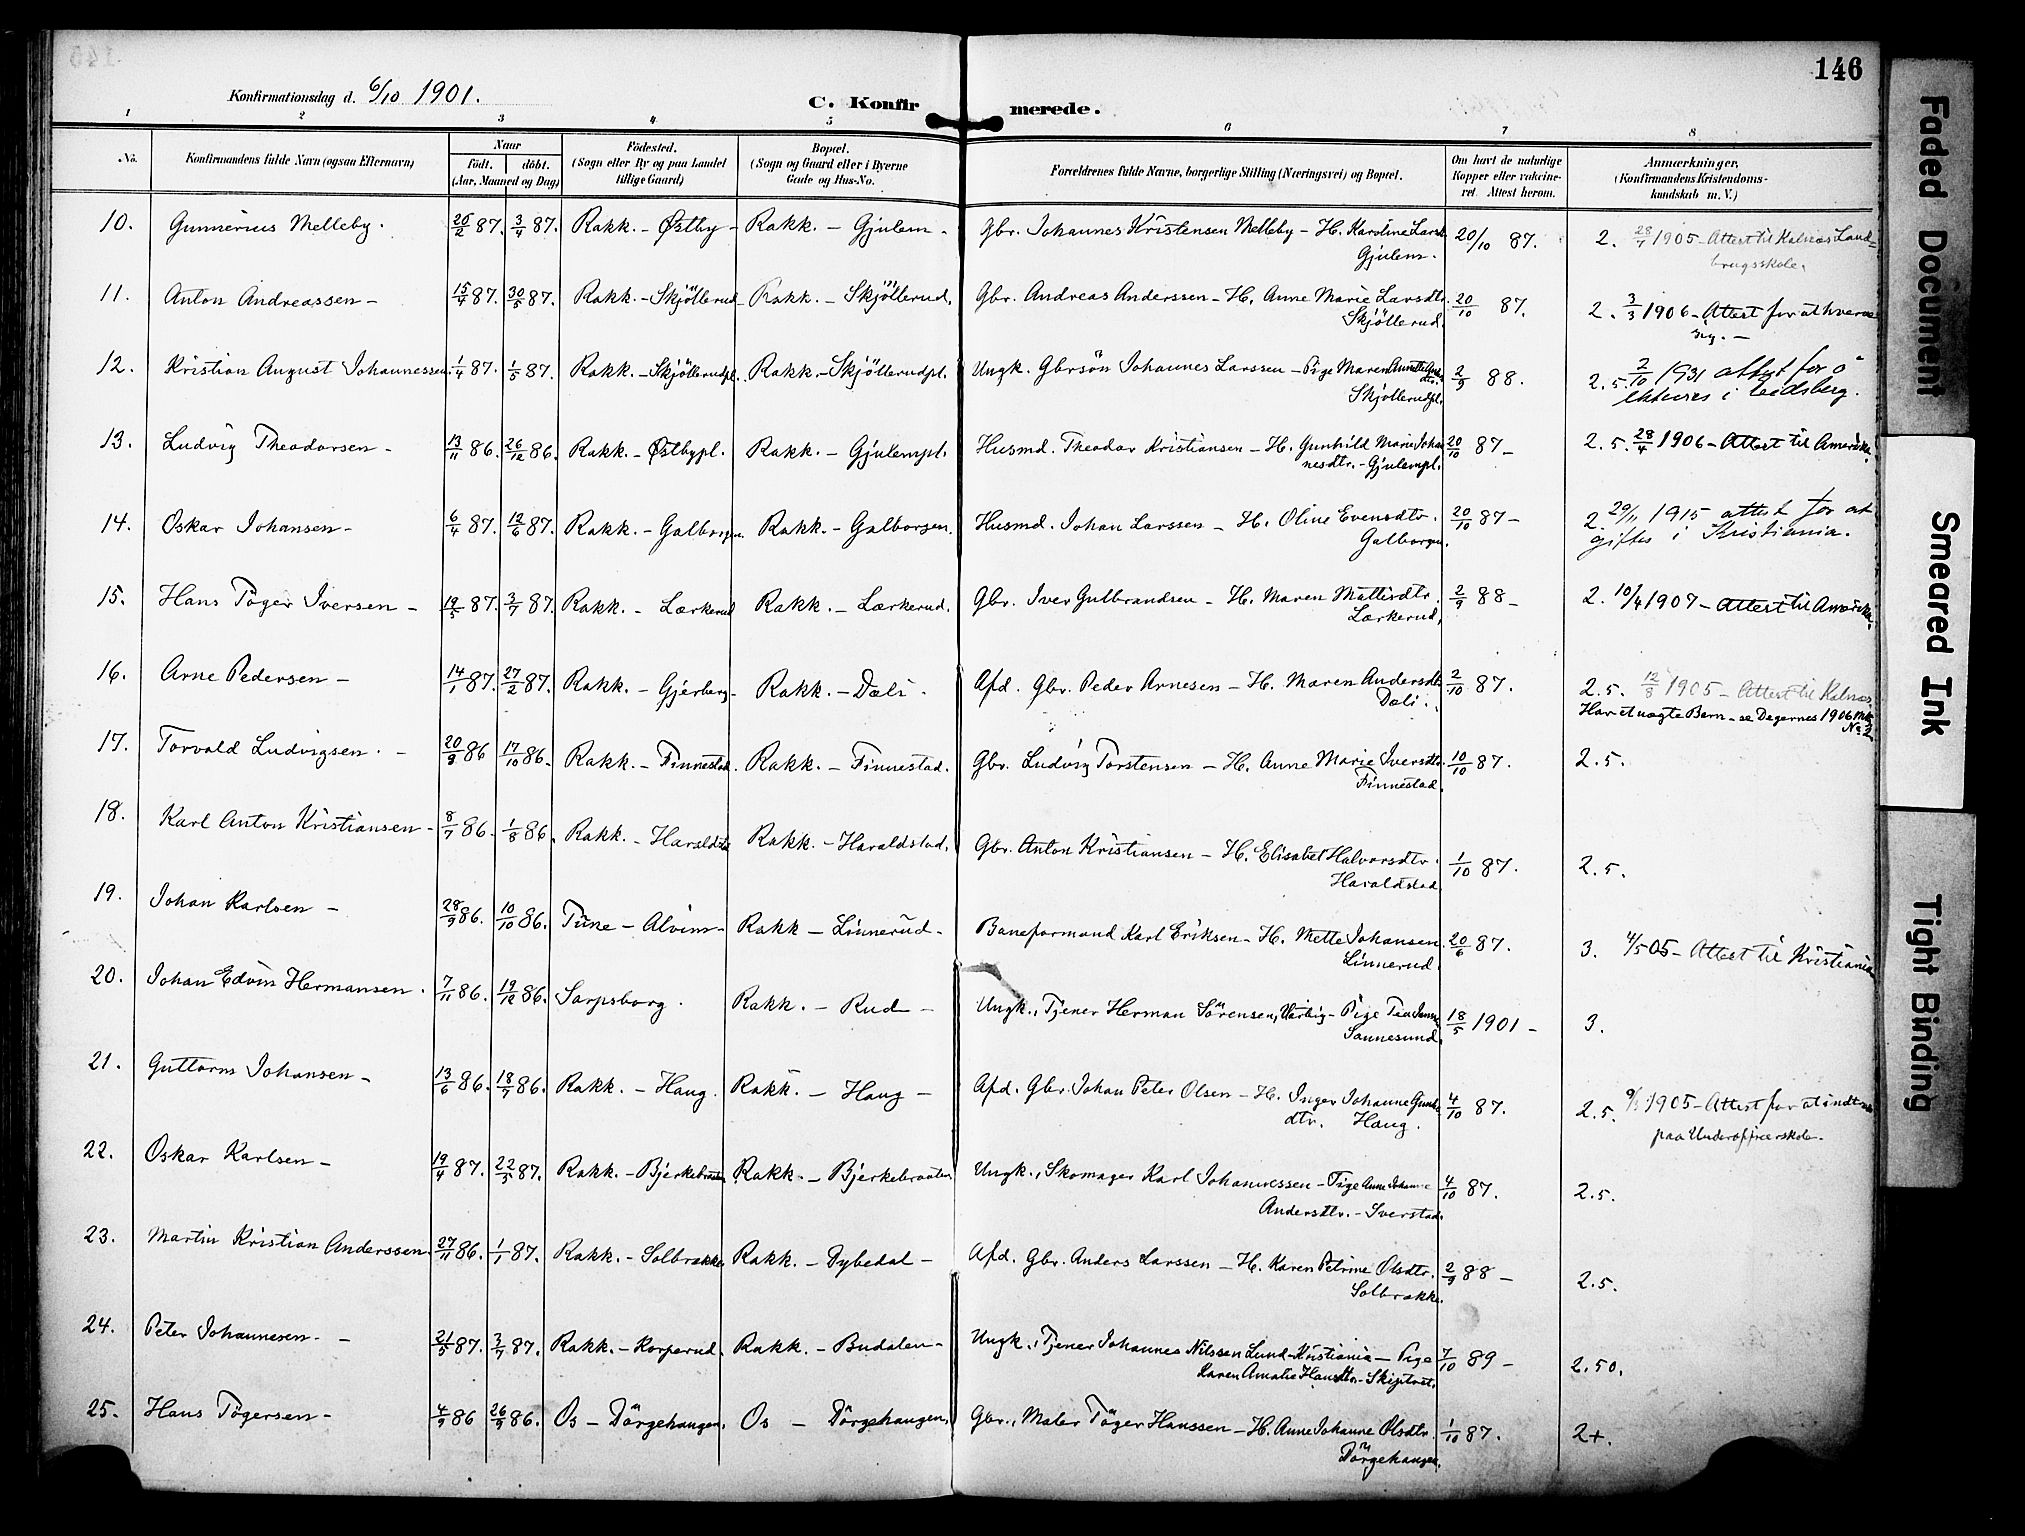 146
Konfirmationsdag d. 6/10 1901.
C. Konfirmerede.
1 2 3 4 5 6 7 8
No. Konfirmandens fulde Navn (ogsaa Efternavn)
Naar
født. døbt.
(Aar, Maaned og Dag)
Fødested.
(Sogn eller By og paa Landet
tillige Gaard)
Bopæl.
(Sogn og Gaard eller i Byerne
Gade og Hus-No.
Forældrenes fulde Navne, borgerlige Stilling (Næringsvei) og Bopæl.
Om havt de naturlige
Kopper eller vaccine-
ret. Attest herom.
Anmærkninger.
(Konfirmandens Kristendoms-
kundskab m. V.)
10. Gunnerius Melleby. 26/2 87. 3/4 87. Rakk. – Østby – Rakk. – Gjulem – Gbr. Johannes Kristensen Melleby – H. Karoline Larsd. 20/10 87. 2. 28/7 1905 – Attest til Kalnæs Land=
Gjulem. brugsskole.
11. Anton Andreassen – 15/4 87. 30/5 87. Rakk. – Skjöllerud – Rakk. – Skjöllerud. Gbr. Andreas Anderssen – H. Anne Marie Larsdtr. 20/10 87. 2. 3/3 1906 – Attest for at hverve
Skjöllerud. sig. –
12. Kristian August Johannessen. 1/4 87. 1/5 87. Rakk. – Skjöllerudpl. Rakk. – Skjöllerudpl. Ungk. Gbrsön Johannes Larssen – Pige Maren 2/9 88. 2.5. 2/10 1931 attest for å
dtr. Skjöllerudpl. ektevies i Eidsberg.
13. Ludvig Theodorsen – 13/11 86. 26/12 86. Rakk. – Østbypl. Rakk. – Gjulempl. Husmd. Theodor Kristiansen – H. Gunhild Marie Johan 20/10 87 – 2.5. 28/4 1906 – Attest til Amerika.
nesdtr. – Gjulempl.
14. Oskar Johansen – 6/4 87. 12/6 87. Rakk. – Galborgen. Rakk. – Galborgen. Husmd. Johan Larssen – H. Oline Evensdtr. 20/10 87 – 2. 29/11 1915 attest for at
Galborgen. giftes i Kristiania.
15. Hans Töger Iversen – 19/5 87. 3/7 87. Rakk. – Lærkerud Rakk. – Lærkerud. Gbr. Iver Gulbrandsen – H. Maren Mattisdtr. 2/9 88 – 2. 10/4 1907 – Attest til Amerika.
Lærkerud.
16. Arne Pedersen – 14/1 87. 27/2 87. Rakk. – Gjerberg – Rakk. – Dæli. Afd. Gbr. Peder Arnesen – H. Maren Andersdtr. 2/10 87. 2.5. 12/8 1905 – Attest til Kalnæs.
Dæli. Har et uægte Barn – se Degernes 1906
No 2
17. Torvald Ludvigsen. – 20/9 86 17/10 86. Rakk. – Finnestad. Rakk. – Finnestad. Gbr. Ludvig Torstensen – H. Anne Marie Iversdtr. 10/10 87. 2.5.
Finnestad.
18. Karl Anton Kristiansen – 8/7 86. 1/8 86. Rakk. – Haraldstad Rakk. – Haraldstad. Gbr. Anton Kristiansen – H. Elisabet Halvorsdtr. 1/10 87. 2.5.
Haraldstad.
19. Johan Karlsen – 28/9 86. 10/10 86. Tune – Alvim – Rakk – Linnerud – Baneformand Karl Eriksen – H. Mette Johansen. 20/6 87. 3. 4/5 05 – Attest til Kristiania
Linnerud.
20. Johan Edvin Hermansen. 7/11 86. 19/12 86. Sarpsborg. Rakk. – Rud – Ungk., Tjener Herman Sörensen, Varteig – Pige 18/5 1901 – 3.
Sannesund.
21. Guttorm Johansen – 13/6 86. 18/7 86. Rakk. – Haug. Rakk. – Haug – Afd. Gbr. Johan Peter Olsen – H. Inger Johanne 4/10 87. 2.5. 1905 – Attest for at indtræde
dtr. Haug. paa Underofficerskole.
22. Oskar Karlsen – 19/4 87. 22/5 87. Rakk. – Bjerkebraaten Rakk. – Bjerkebraaten. Ungk., Skomager Karl Johannessen – Pige Anne Johanne 4/10 87. 2.5.
Andersdtr. – Sverstad.
23. Martin Kristian Anderssen. 27/11 86. 1/1 87. Rakk. – Solbrække Rakk. – Dybedal – Afd. Gbr. Anders Larssen – H. Karen Petrine Olsdtr. 2/9 88 – 2.5.
Solbrække.
24. Peter Johannesen. – 21/5 87. 3/7 87. Rakk. – Korperud. Rakk. – Budalen – Ungk., Tjener Johannes Nilssen Lund – Kristiania – Pige 7/10 89 – 2.50.
Karen Amalie Hansdtr. – Skiptvet.
25. Hans Tögersen – 4/9 86 26/9 86. Os – Dörgehaugen. Os – Dörgehaugen. Gbr., Maler Töger Hanssen – H. Anne Johanne Olsdtr. 1/10 87. 2+.
Dörgehaugen.
Faded Document
Smeared Ink
Tight Binding